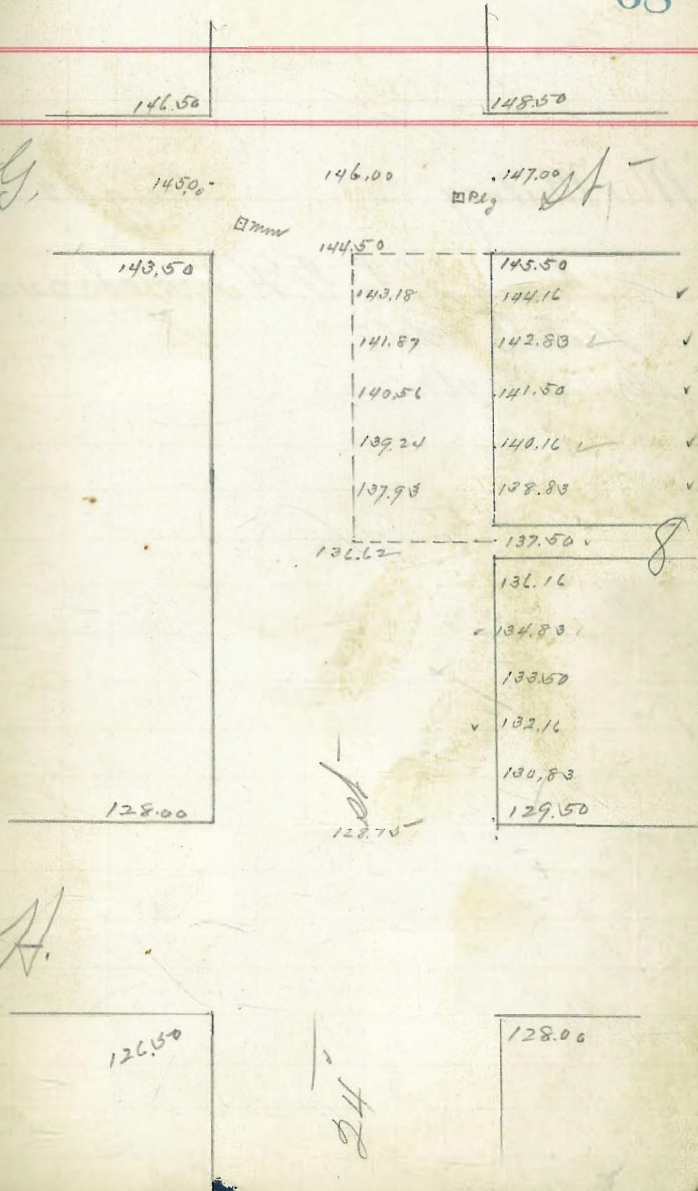 68
146.50 148.50
G. 145.00 146.00 147.00 St
144.50
143.50 145.50
143.18 144.16
141.87 142.83
140.56 141.50
139.24 140.16
137.93 138.83
136.62 137.50 8
136.16
134.83
133.50
132.16
130.83
128.00 129.50
128.75
St
H.
126.50 128.00
24